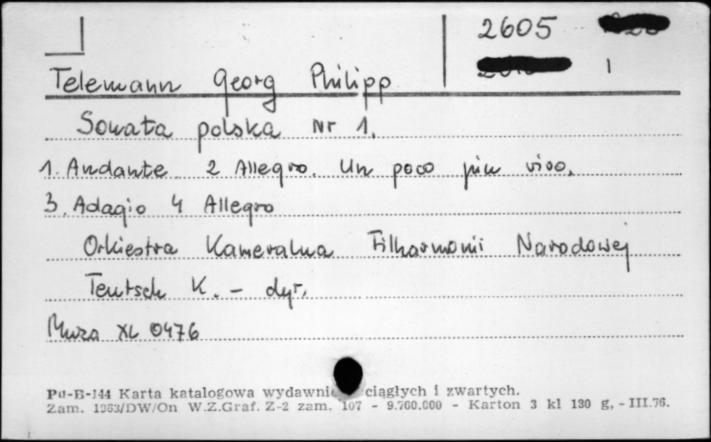 2605
1
Telemann Georg Philipp
Sonata polska nr 1.
1. Andante 2 Allegro. Un poco piu vivo.
3. Adagio 4 Allegro
Orkiestra Kameralna Filharmonii Narodowej
Teutsch K. - dyr.
Muza XL 0476
Pu-B-144 Karta katalogowa wydawni ciągłych i zwartych.
Zam. 1263/DW/On W.Z.Graf. Z-2 zam. 107 - 9.760.000 - Karton 3 kl 130 g. - III.76.